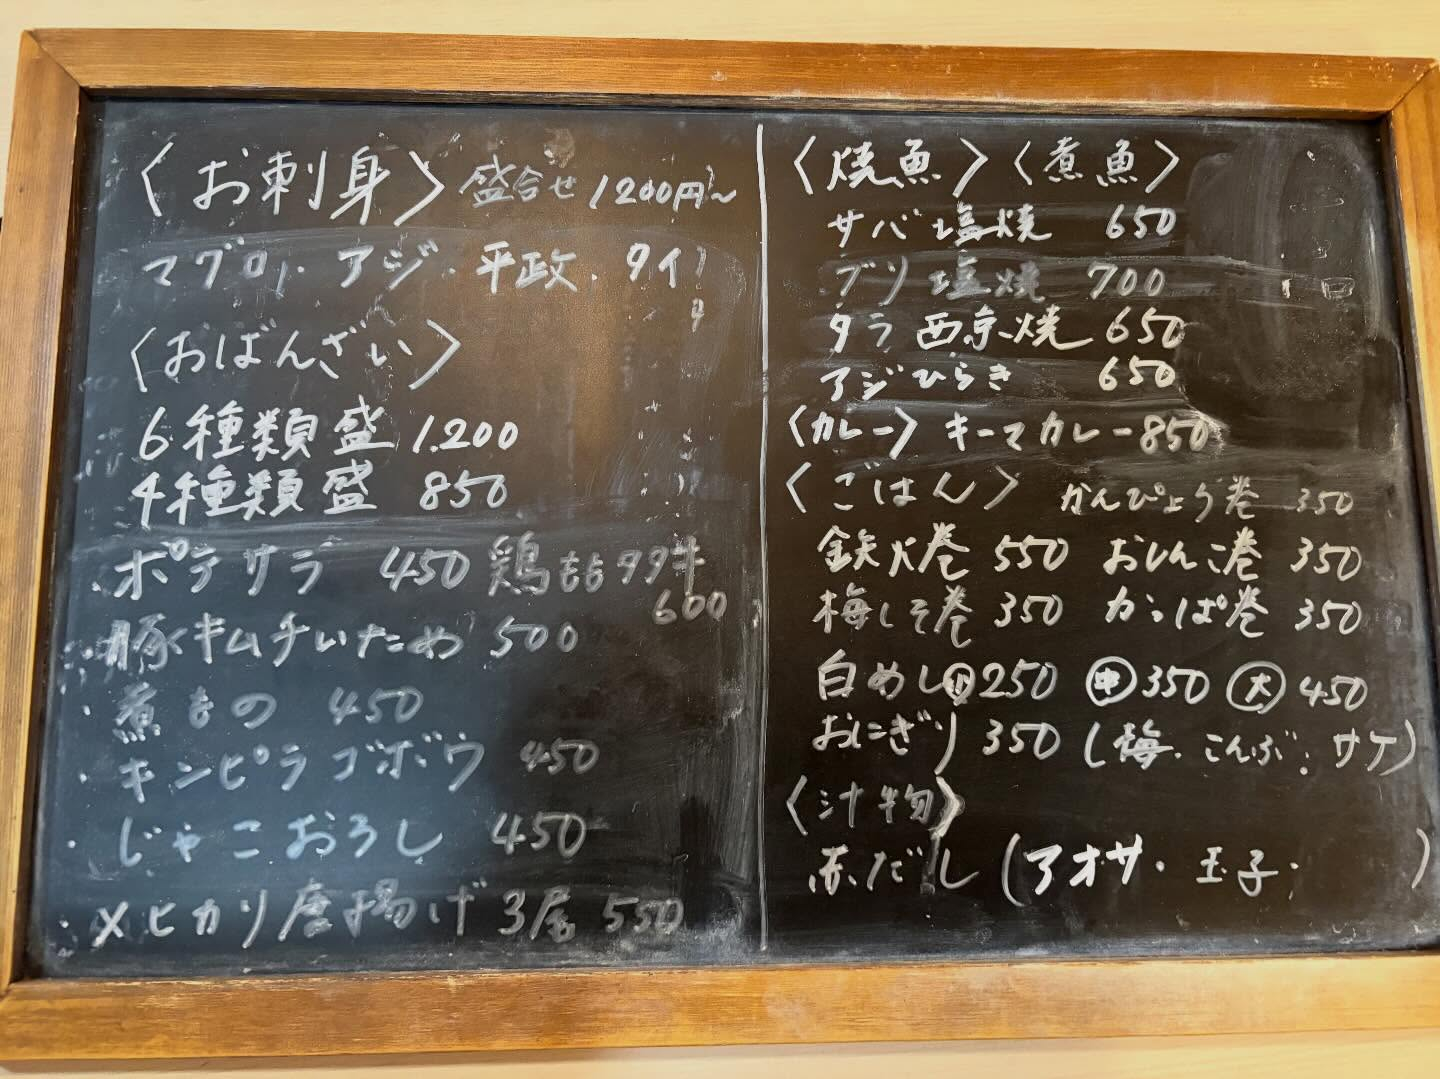 〈お刺身〉盛合せ 1200円~
マグロ・アジ・平政・タイ
〈おばんざい〉
6種類盛 1.200
4種類盛 850
・ポテサラ 450 鶏ももタタキ 600
・豚キムチいため 500
・煮もの 450
・キンピラゴボウ 450
・じゃこおろし 450
・メヒカリ唐揚げ 3尾 550
〈焼魚〉〈煮魚〉
サバ塩焼 650
ブリ塩焼 700
タラ西京焼 650
アジひらき 650
〈カレー〉キーマカレー 850
〈ごはん〉 かんぴょう巻 350
鉄火巻 550 おしんこ巻 350
梅しそ巻 350 かっぱ巻 350
白めし ㊥小 250 ㊥ 350 大 450
おにぎり 350 (梅・こんぶ・サケ)
〈汁物〉
赤だし (アオサ・玉子・ )